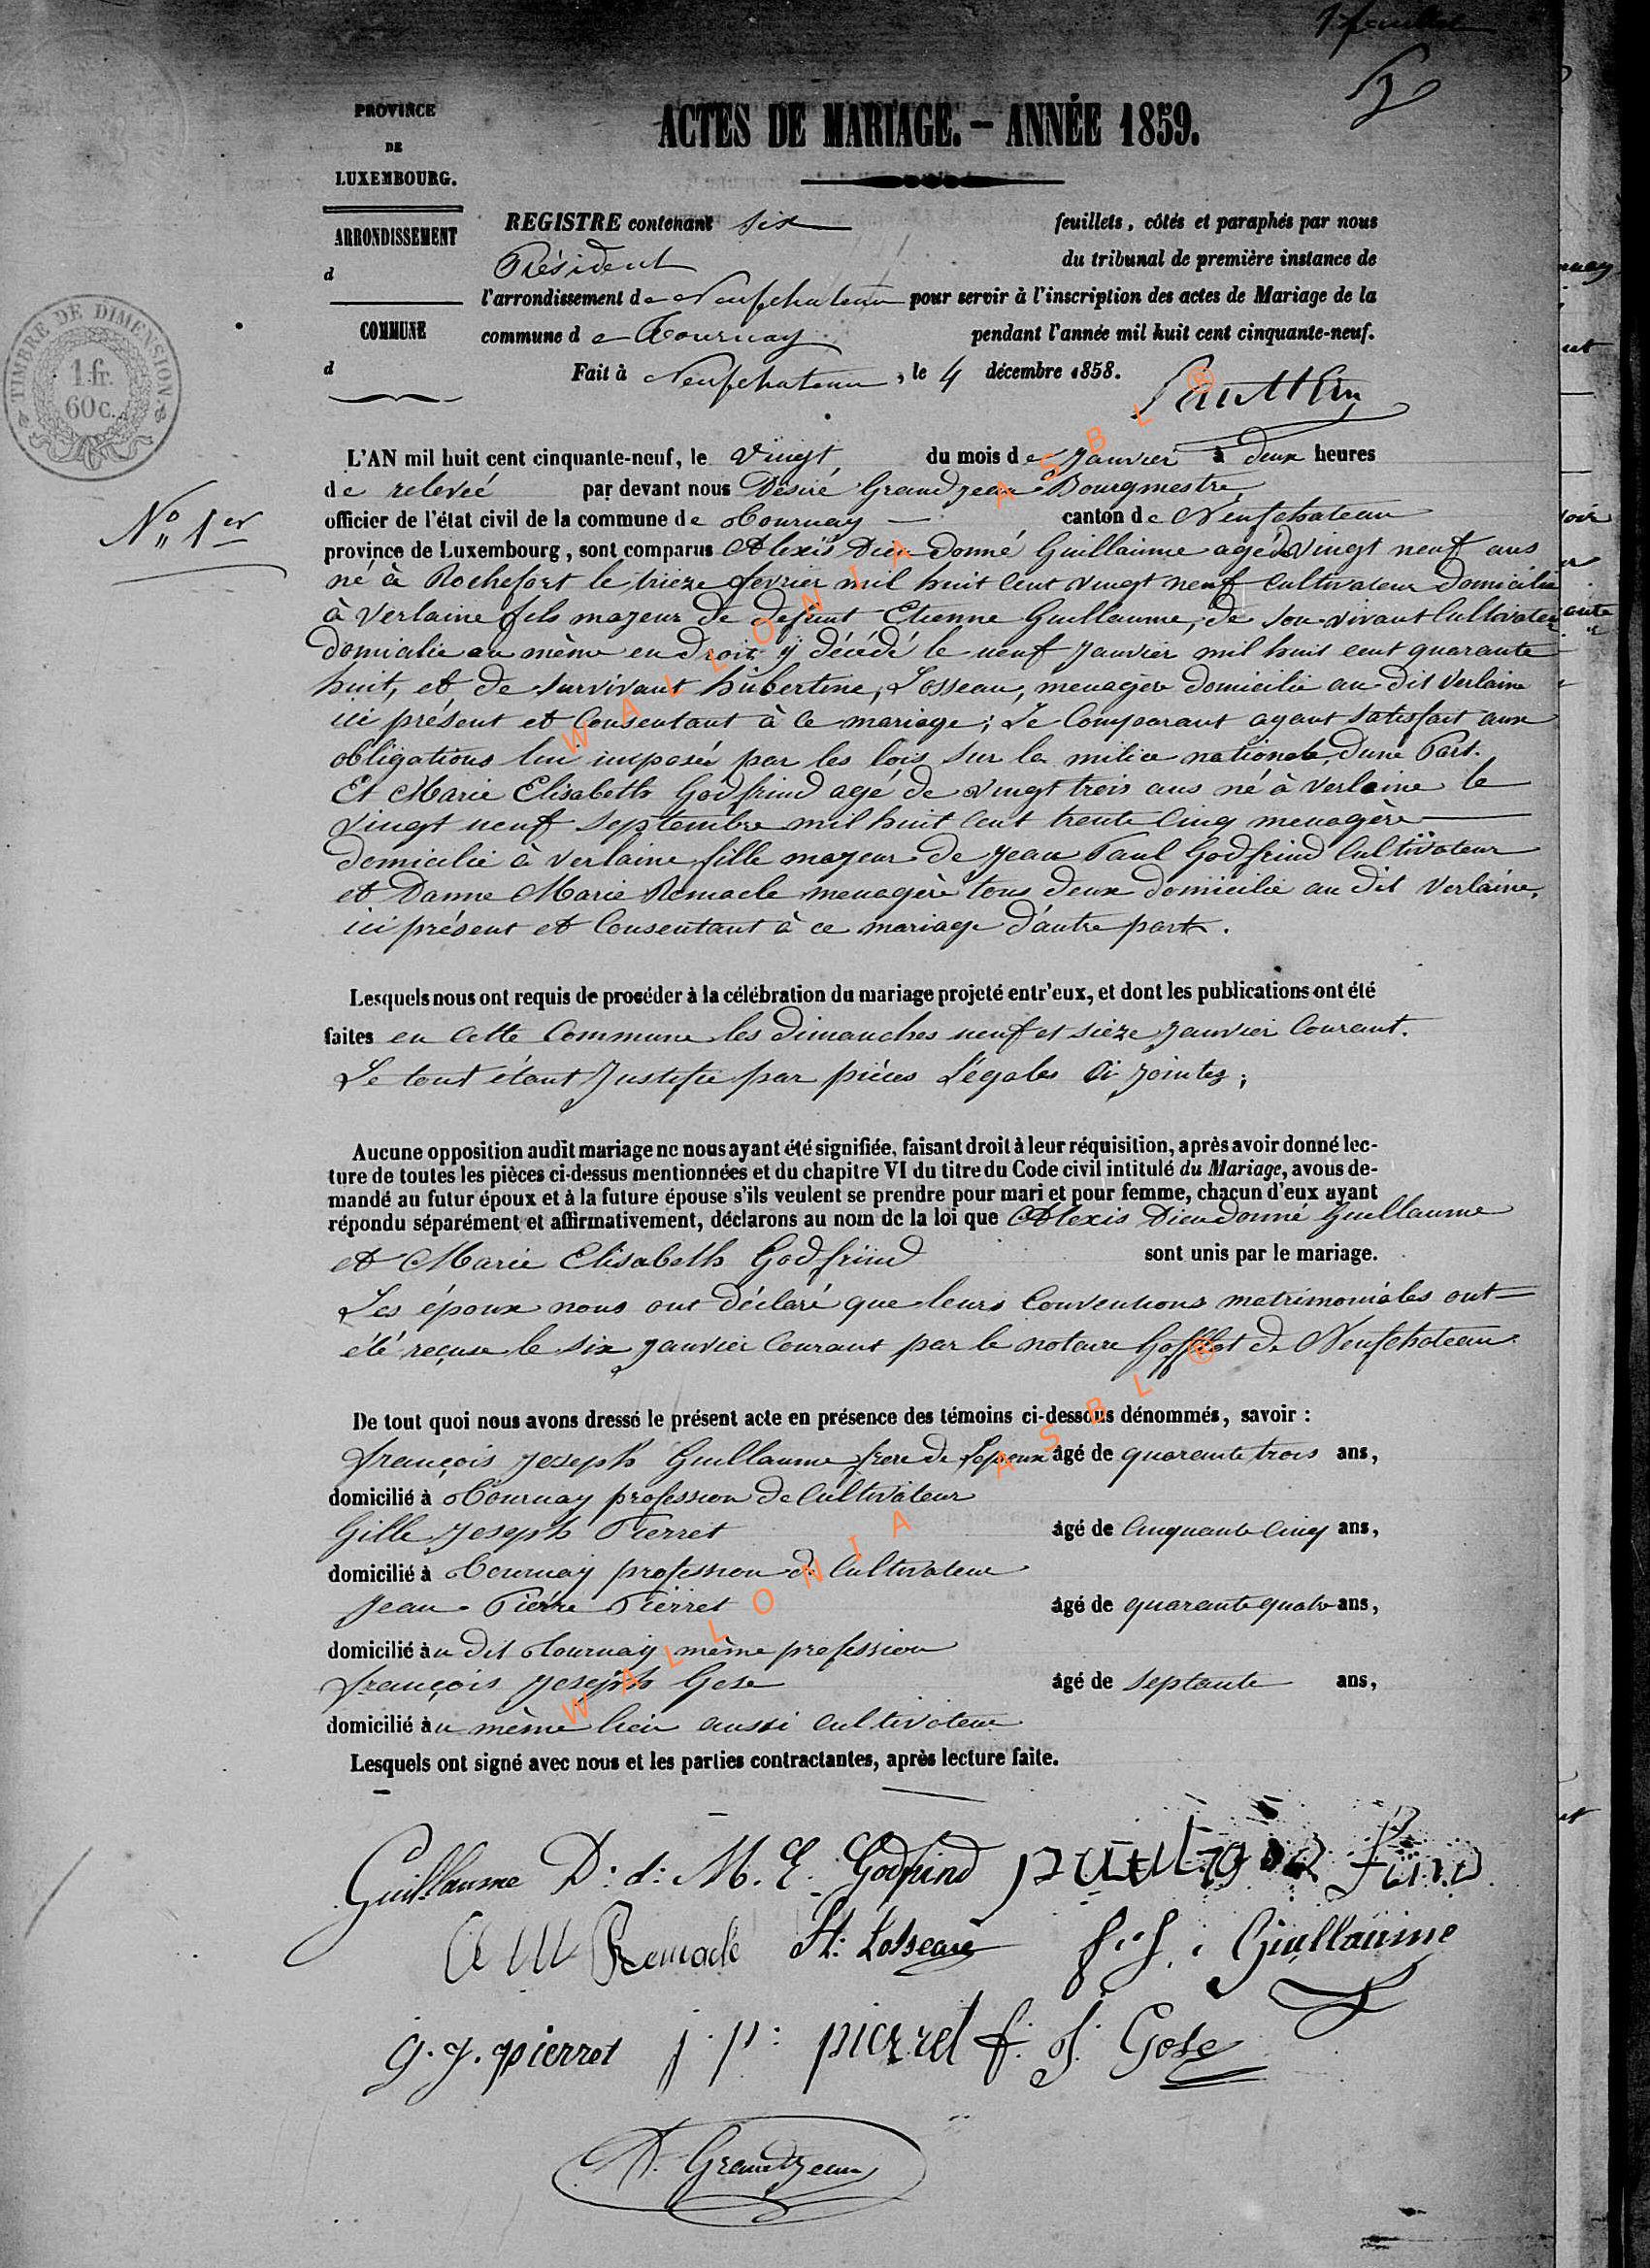 1 feuillet
PROVINCE
DE
LUXEMBOURG.
ACTES DE MARIAGE. — ANNÉE 1859.
ARRONDISSEMENT
d
COMMUNE
d
TIMBRE DE DIMENSION
1 fr.
60 c.
REGISTRE contenant six feuillets, côtés et paraphés par nous
Président du tribunal de première instance de
l'arrondissement de Neufchateau pour servir à l'inscription des actes de Mariage de la
commune de Tournay pendant l'année mil huit cent cinquante-neuf.
Fait à Neufchateau, le 4 décembre 1858.
N° 1er
L'AN mil huit cent cinquante-neuf, le Vingt du mois de Janvier à deux heures
de relevée par devant nous Désiré Grandjean Bourgmestre
officier de l'état civil de la commune de Tournay — canton de Neufchateau
province de Luxembourg, sont comparus Alexis Dieu donné Guillaume agé de vingt neuf ans
né à Rochefort le trieze fevrier mil huit cent vingt neuf cultivateur domicilié
à Verlaine fils majeur de defunt Etienne Guillaume, de son vivant Cultivateur
domicilié au même endroit y décédé le neuf Janvier mil huit cent quarante
huit, et de survivant hubertine, Losseau, menagère domicilié au dit Verlaine
ici présent et Consentant à ce mariage; Le Comparant ayant satisfait aux
obligations lui imposés par les lois sur la milice nationale, dune Part.
Et Marie Elisabeth Godfrind agé de vingt trois ans né à Verlaine le
vingt neuf septembre mil huit cent trente cinq menagère —
domicilié à Verlaine fille majeur de Jean Paul Godfrind Cultivateur
et Danne Marie Remacle menagère tous deux domicilié au dit Verlaine,
ici présent et Consentant à ce mariage d'autre part.
Lesquels nous ont requis de procéder à la célébration du mariage projeté entr'eux, et dont les publications ont été
faites en cette Commune les dimanches neuf et sieze Janvier Courant.
Le tout étant Justifié par pièces Légales Ci Jointes;
Aucune opposition audit mariage ne nous ayant été signifiée, faisant droit à leur réquisition, après avoir donné lec-
ture de toutes les pièces ci-dessus mentionnées et du chapitre VI du titre du Code civil intitulé du Mariage, avous de-
mandé au futur époux et à la future épouse s'ils veulent se prendre pour mari et pour femme, chacun d'eux ayant
répondu séparément et affirmativement, déclarons au nom de la loi que Alexis Dieudonné Guillaume
et Marie Elisabeth Godfrind sont unis par le mariage.
Les époux nous ont déclaré que leurs Conventions matrimoniales ont
été reçuse le six Janvier Courant par le notaire de Neufchateau.
De tout quoi nous avons dressé le présent acte en présence des témoins ci-dessous dénommés, savoir :
françois Joseph Guillaume frere de Lepoux âgé de quarante trois ans,
domicilié à Tournay profession de Cultivateur
Gille Joseph Pierret âgé de Cinquante Cinq ans,
domicilié à Tournay profession de Cultivateur
Jean Pierre Pierret âgé de quarante quatre ans,
domicilié au dit Tournay même profession
françois Joseph Gose âgé de septante ans,
domicilié au même lieu aussi cultivateur
Lesquels ont signé avec nous et les parties contractantes, après lecture faite.
Guillaume D: d: M. E. Godfrind paul god frind
a m Remacle H: Losseau f. J. Guillaume
g. j. pierret j. p: pierret f. J. Gose
D. Grandjean
WALLONIA ASBL ®
WALLONIA ASBL ®